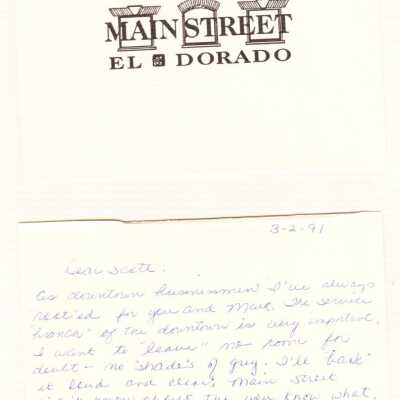 MAIN STREET
EL DORADO
3-2-91
Dear Scott:
As downtown businessmen I've always
for you and Mark. The service
of the downtown is very important.
I want to "leave" no room for
doubt - no "shades of grey. I'll "bark"
it loud and clear. Main Street
know what